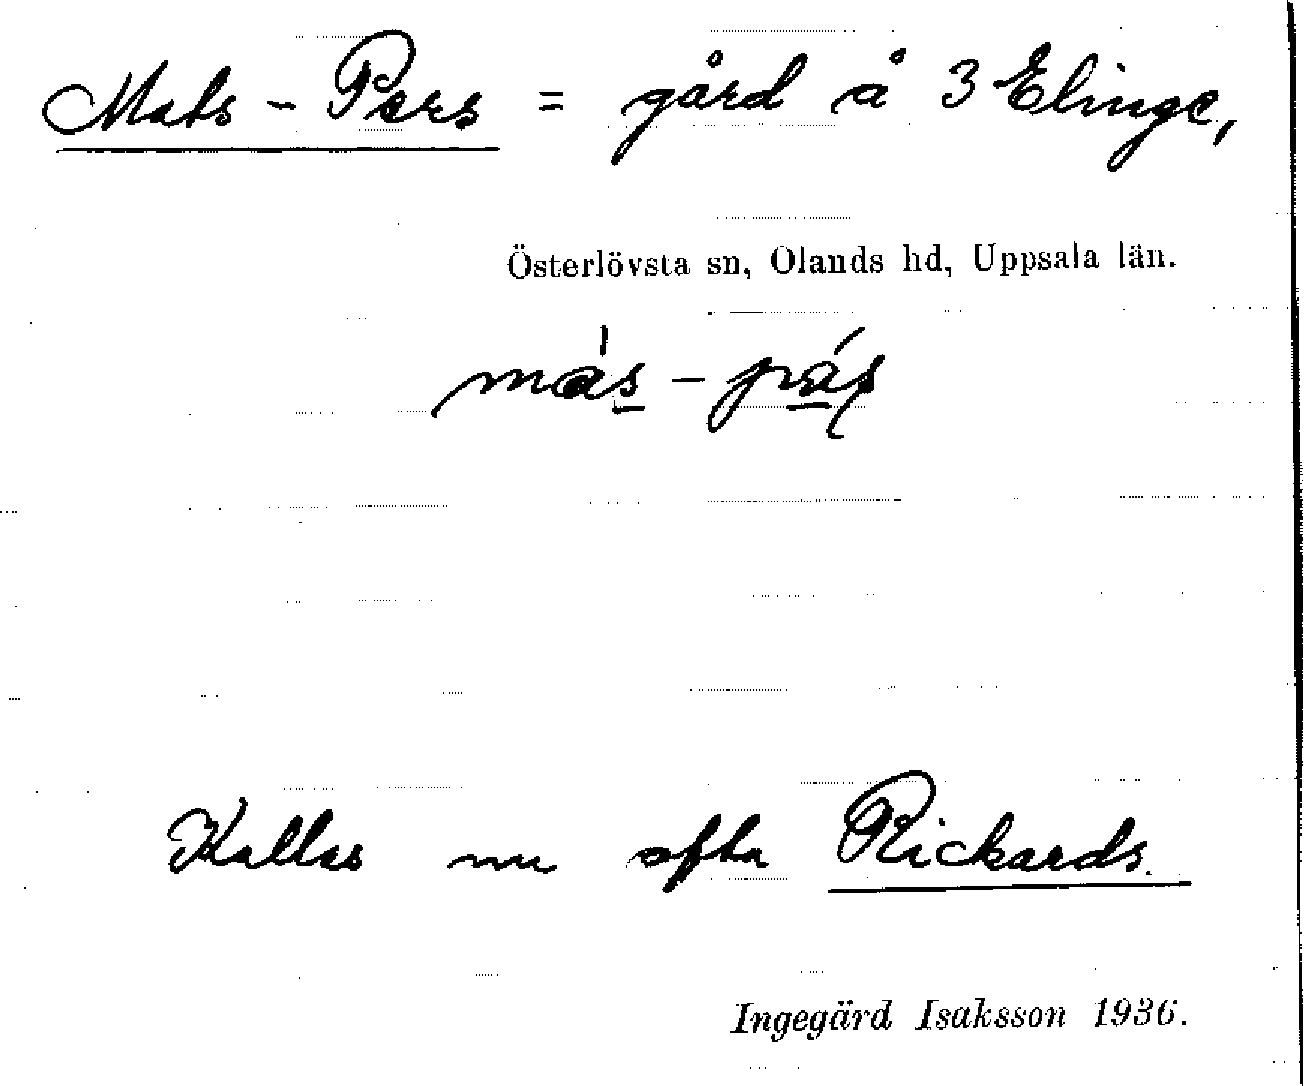 Mats-Pers = gård å 3 Elinge,
Österlövsta sn, Olands hd, Uppsala län.
Kallas nu ofta Rickards.
Ingegärd Isaksson 1936.